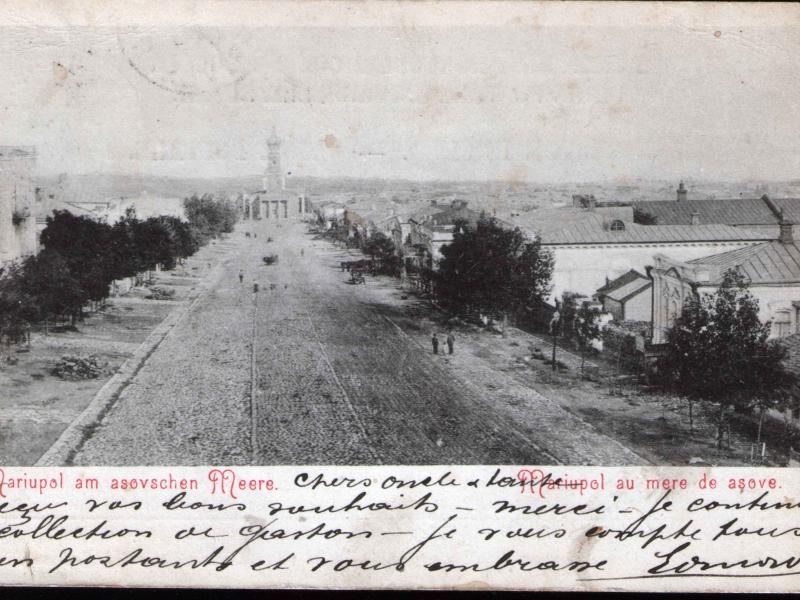 Mariupol am asovschen Meere. Chers oncle & tante Mariupol au mere de asove.
reçu vos bons souhaits - merci - Je continu
collection de Gaston - je vous compte tous
en postants et vous embrasse